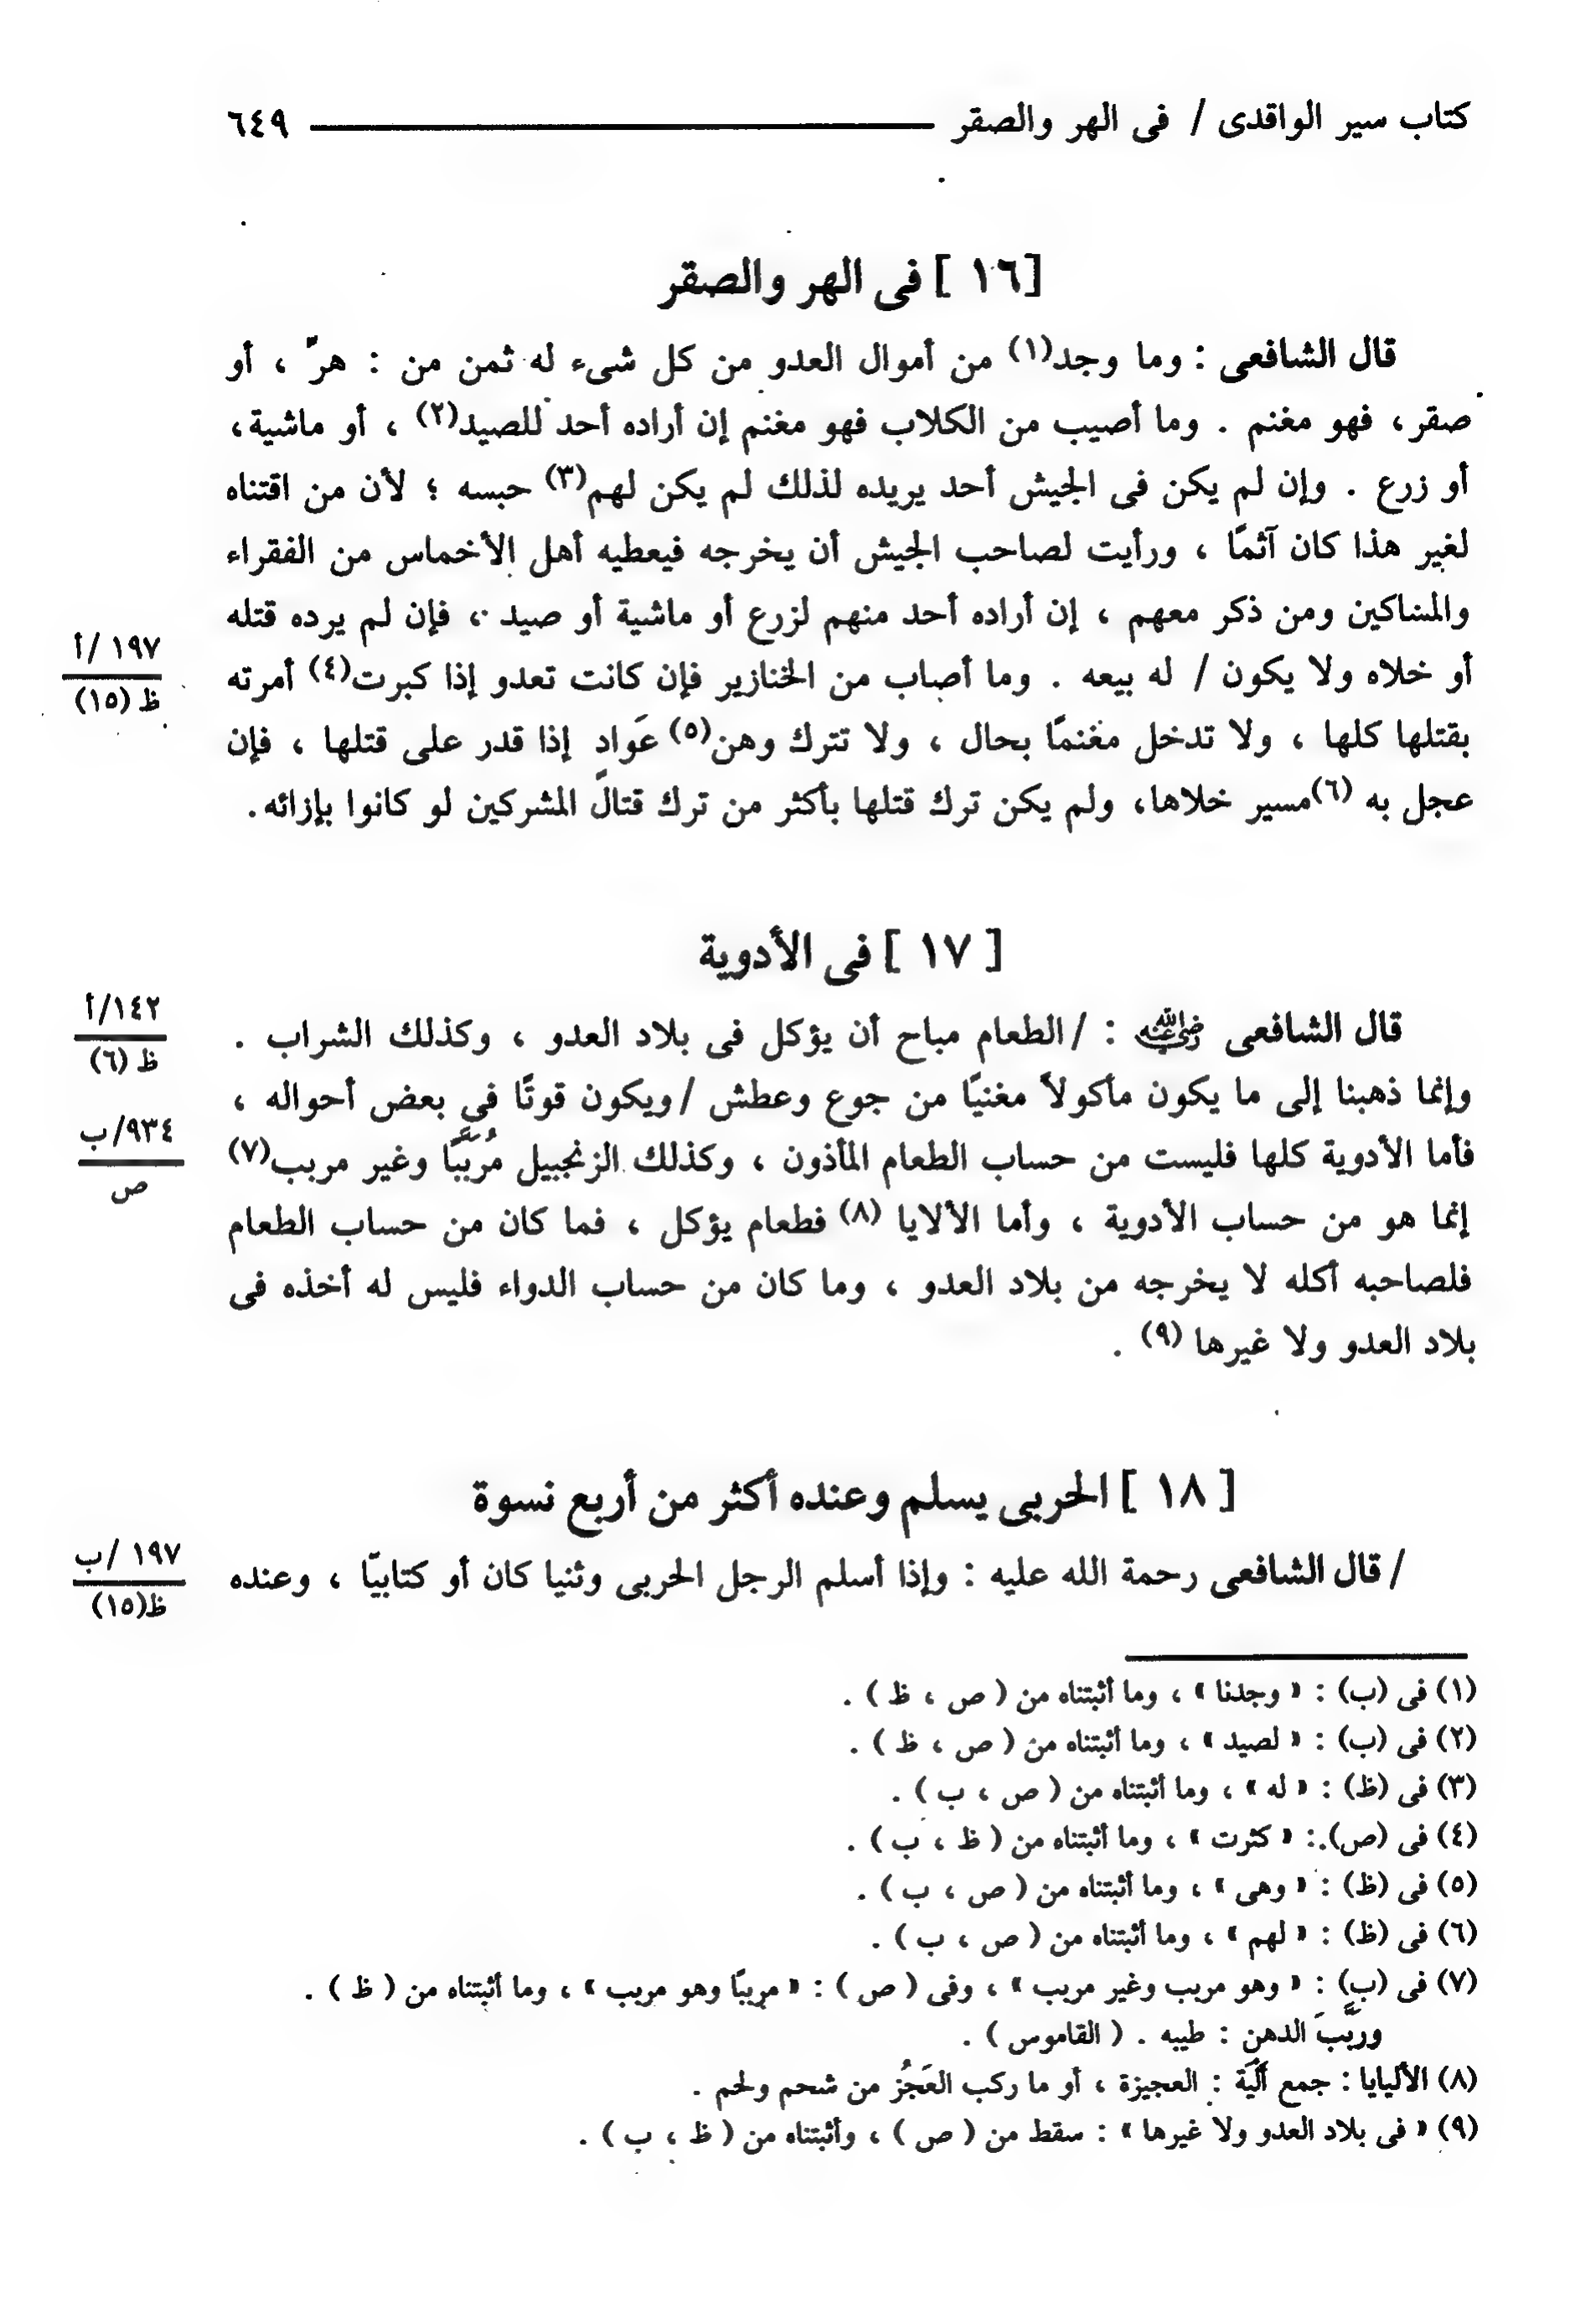 كتاب سير الواقدى / فى الهر والصقر ٦٤٩
[١٦ ] فى الهر والصقر
قال الشافعى : وما وجد(١) من أموال العدو من كل شىء له ثمن من : هرّ ، أو
صقر، فهو مغنم . وما أصيب من الكلاب فهو مغنم إن أراده أحد للصيد(٢) ، أو ماشية،
أو زرع . وإن لم يكن فى الجيش أحد يريده لذلك لم يكن لهم(٣) حبسه ؛ لأن من اقتناه
لغير هذا كان آثمًا ، ورأيت لصاحب الجيش أن يخرجه فيعطيه أهل الأخماس من الفقراء
والمساكين ومن ذكر معهم ، إن أراده أحد منهم لزرع أو ماشية أو صيد ، فإن لم يرده قتله
١٩٧ /أ
ظ (١٥)
أو خلاه ولا يكون / له بيعه . وما أصاب من الخنازير فإن كانت تعدو إذا كبرت(٤) أمرته
بقتلها كلها ، ولا تدخل مغنمًا بحال ، ولا تترك وهن(٥) عَوادٍ إذا قدر على قتلها ، فإن
عجل به (٦)مسير خلاها، ولم يكن ترك قتلها بأكثر من ترك قتال المشركين لو كانوا بإزائه.
[ ١٧ ] فى الأدوية
١٤٢/أ
ظ (٦)
قال الشافعى رضي الله عنه : /الطعام مباح أن يؤكل فى بلاد العدو ، وكذلك الشراب .
وإنما ذهبنا إلى ما يكون مأكولاً مغنيًا من جوع وعطش /ويكون قوتًا في بعض أحواله ،
٩٣٤/ب
ص
فأما الأدوية كلها فليست من حساب الطعام المأذون ، وكذلك الزنجبيل مُرَبَّبًا وغير مربب(٧)
إنما هو من حساب الأدوية ، وأما الألايا (٨) فطعام يؤكل ، فما كان من حساب الطعام
فلصاحبه أكله لا يخرجه من بلاد العدو ، وما كان من حساب الدواء فليس له أخذه فى
بلاد العدو ولا غيرها (٩) .
[ ١٨ ] الحربى يسلم وعنده أكثر من أربع نسوة
١٩٧ /ب
ظ(١٥)
/ قال الشافعى رحمة الله عليه : وإذا أسلم الرجل الحربى وثنيا كان أو كتابيّا ، وعنده
(١) فى (ب) : « وجدنا » ، وما أثبتناه من ( ص ، ظ ) .
(٢) فى (ب) : « لصيد » ، وما أثبتناه من ( ص ، ظ ) .
(٣) فى (ظ) : « له » ، وما أثبتناه من ( ص ، ب ) .
(٤) فى (ص) : « كثرت » ، وما أثبتناه من ( ظ ، ب ) .
(٥) فى (ظ) : « وهى » ، وما أثبتناه من ( ص ، ب ) .
(٦) فى (ظ) : « لهم » ، وما أثبتناه من ( ص ، ب ) .
(٧) فى (ب) : « وهو مربب وغير مربب » ، وفى ( ص ) : « مربيًا وهو مربب » ، وما أثبتناه من ( ظ ) .
وربَّبَ الدهن : طيبه . ( القاموس ) .
(٨) الأليايا : جمع ألْيَة : العجيزة ، أو ما ركب العَجُز من شحم ولحم .
(٩) « فى بلاد العدو ولا غيرها » : سقط من ( ص ) ، وأثبتناه من ( ظ ، ب ) .